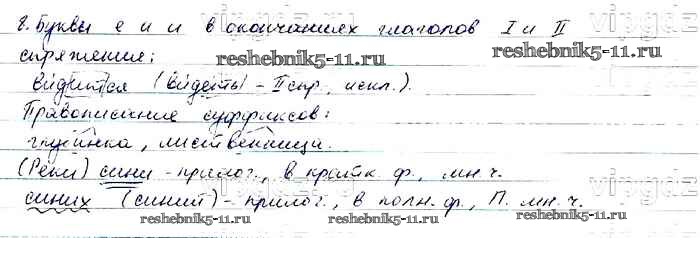 8. Буквы е и и в окончаниях глаголов I и II
спряжение:
видится (видеть – II спр., искл.).
Правописание суффиксов:
глубинка, лиственница.
(Реки) сини – прилог., в кратк. ф., мн. ч.
синих (синий) – прилог., в полн. ф., П. мн. ч.
reshebnik5-11.ru
reshebnik5-11.ru
reshebnik5-11.ru
reshebnik5-11.ru
vipgdz
vipgdz
vipgdz